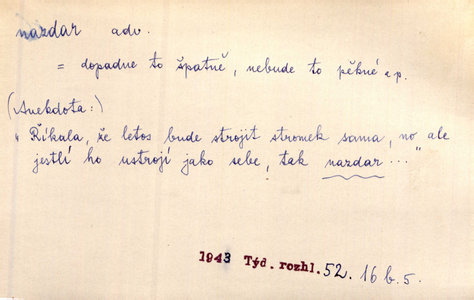 nazdar adv.
= dopadne to špatně, nebude to pěkné ap.
(Anekdota:)
"Říkala, že letos bude strojit stromek sama, no ale
jestli ho ustrojí jako sebe, tak nazdar..."
1943 Týd. rozhl. 52. 16 b. 5.